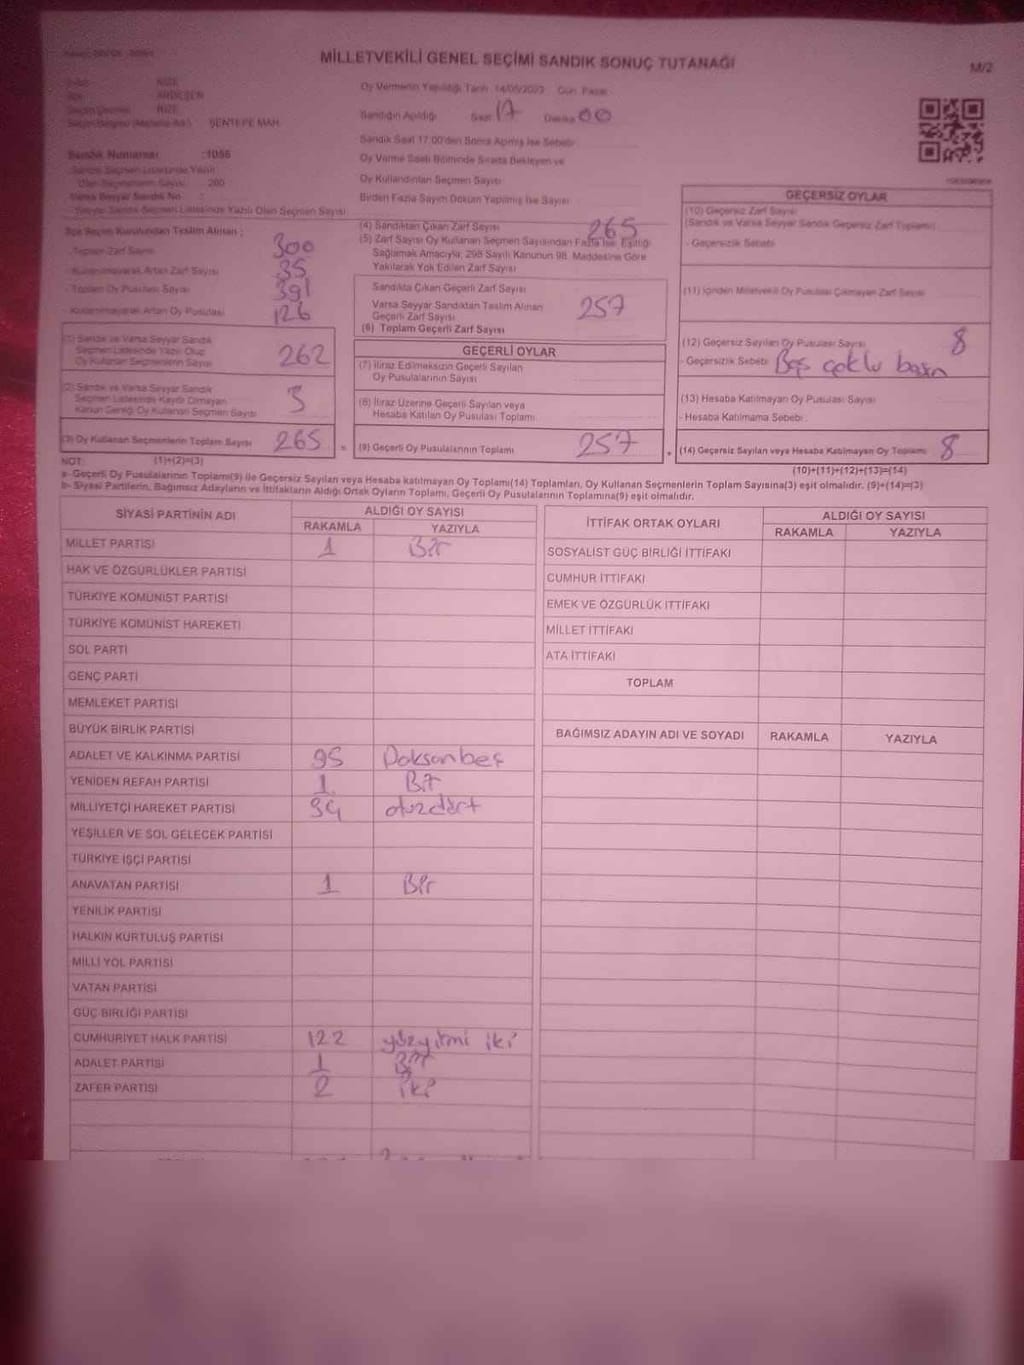 MİLLETVEKİLİ GENEL SEÇİMİ SANDIK SONUÇ TUTANAĞI
M/2
RİZE
ARDEŞEN
RİZE
ŞENTEPE MAH.
Sandık Numarası :1056
Oy Vermenin Yapıldığı Tarih 14/05/2023 Gün Pazar
Sandığın Açıldığı Saat 17 Dakika 00
Sandık Saat 17:00'den Sonra Açılmış İse Sebebi
Oy Verme Saati Bitiminde Sırada Bekleyen ve
Oy Kullandırılan Seçmen Sayısı
Birden Fazla Sayım Döküm Yapılmış İse Sayısı
Sandık Seçmen Listesinde Yazılı Olan Seçmen Sayısı
İlçe Seçim Kurulundan Teslim Alınan ;
- Toplam Zarf Sayısı 300
- Kullanılmayarak Artan Zarf Sayısı 35
- Toplam Oy Pusulası Sayısı 391
- Kullanılmayarak Artan Oy Pusulası 126
(1) Sandık ve Varsa Seyyar Sandık
Seçmen Listesinde Yazılı Olup
Oy Kullanan Seçmenlerin Sayısı 262
(2) Sandık ve Varsa Seyyar Sandık
Seçmen Listesinde Kayıtlı Olmayan
Kanun Gereği Oy Kullanan Seçmen Sayısı 3
(3) Oy Kullanan Seçmenlerin Toplam Sayısı 265
(1)+(2)=(3)
(4) Sandıktan Çıkan Zarf Sayısı 265
(5) Zarf Sayısı Oy Kullanan Seçmen Sayısından Fazla İse, Eşitliği
Sağlamak Amacıyla; 298 Sayılı Kanunun 98. Maddesine Göre
Yakılarak Yok Edilen Zarf Sayısı
Sandıkta Çıkan Geçerli Zarf Sayısı
Varsa Seyyar Sandıktan Teslim Alınan
Geçerli Zarf Sayısı
(6) Toplam Geçerli Zarf Sayısı 257
GEÇERLİ OYLAR
(7) İtiraz Edilmeksizin Geçerli Sayılan
Oy Pusulalarının Sayısı
(8) İtiraz Üzerine Geçerli Sayılan veya
Hesaba Katılan Oy Pusulası Toplamı
= (9) Geçerli Oy Pusulalarının Toplamı 257
GEÇERSİZ OYLAR
(10) Geçersiz Zarf Sayısı
(Sandık ve Varsa Seyyar Sandık Geçersiz Zarf Toplamı)
- Geçersizlik Sebebi
(11) İçinden Milletvekili Oy Pusulası Çıkmayan Zarf Sayısı
(12) Geçersiz Sayılan Oy Pusulası Sayısı 8
- Geçersizlik Sebebi Boş çoklu basın
(13) Hesaba Katılmayan Oy Pusulası Sayısı
- Hesaba Katılmama Sebebi
+ (14) Geçersiz Sayılan veya Hesaba Katılmayan Oy Toplamı 8
(10)+(11)+(12)+(13)=(14)
NOT:
a- Geçerli Oy Pusulalarının Toplamı(9) ile Geçersiz Sayılan veya Hesaba katılmayan Oy Toplamı(14) Toplamları, Oy Kullanan Seçmenlerin Toplam Sayısına(3) eşit olmalıdır. (9)+(14)=(3)
b- Siyasi Partilerin, Bağımsız Adayların ve İttifakların Aldığı Ortak Oyların Toplamı, Geçerli Oy Pusulalarının Toplamına(9) eşit olmalıdır.
SİYASİ PARTİNİN ADI ALDIĞI OY SAYISI
RAKAMLA YAZIYLA
MİLLET PARTİSİ 1 Bir
HAK VE ÖZGÜRLÜKLER PARTİSİ
TÜRKİYE KOMÜNİST PARTİSİ
TÜRKİYE KOMÜNİST HAREKETİ
SOL PARTİ
GENÇ PARTİ
MEMLEKET PARTİSİ
BÜYÜK BİRLİK PARTİSİ
ADALET VE KALKINMA PARTİSİ 95 Doksanbeş
YENİDEN REFAH PARTİSİ 1 Bir
MİLLİYETÇİ HAREKET PARTİSİ 34 otuzdört
YEŞİLLER VE SOL GELECEK PARTİSİ
TÜRKİYE İŞÇİ PARTİSİ
ANAVATAN PARTİSİ 1 Bir
YENİLİK PARTİSİ
HALKIN KURTULUŞ PARTİSİ
MİLLİ YOL PARTİSİ
VATAN PARTİSİ
GÜÇ BİRLİĞİ PARTİSİ
CUMHURİYET HALK PARTİSİ 122 yüzyirmi iki
ADALET PARTİSİ 1 Bir
ZAFER PARTİSİ 2 iki
İTTİFAK ORTAK OYLARI ALDIĞI OY SAYISI
RAKAMLA YAZIYLA
SOSYALİST GÜÇ BİRLİĞİ İTTİFAKI
CUMHUR İTTİFAKI
EMEK VE ÖZGÜRLÜK İTTİFAKI
MİLLET İTTİFAKI
ATA İTTİFAKI
TOPLAM
BAĞIMSIZ ADAYIN ADI VE SOYADI RAKAMLA YAZIYLA